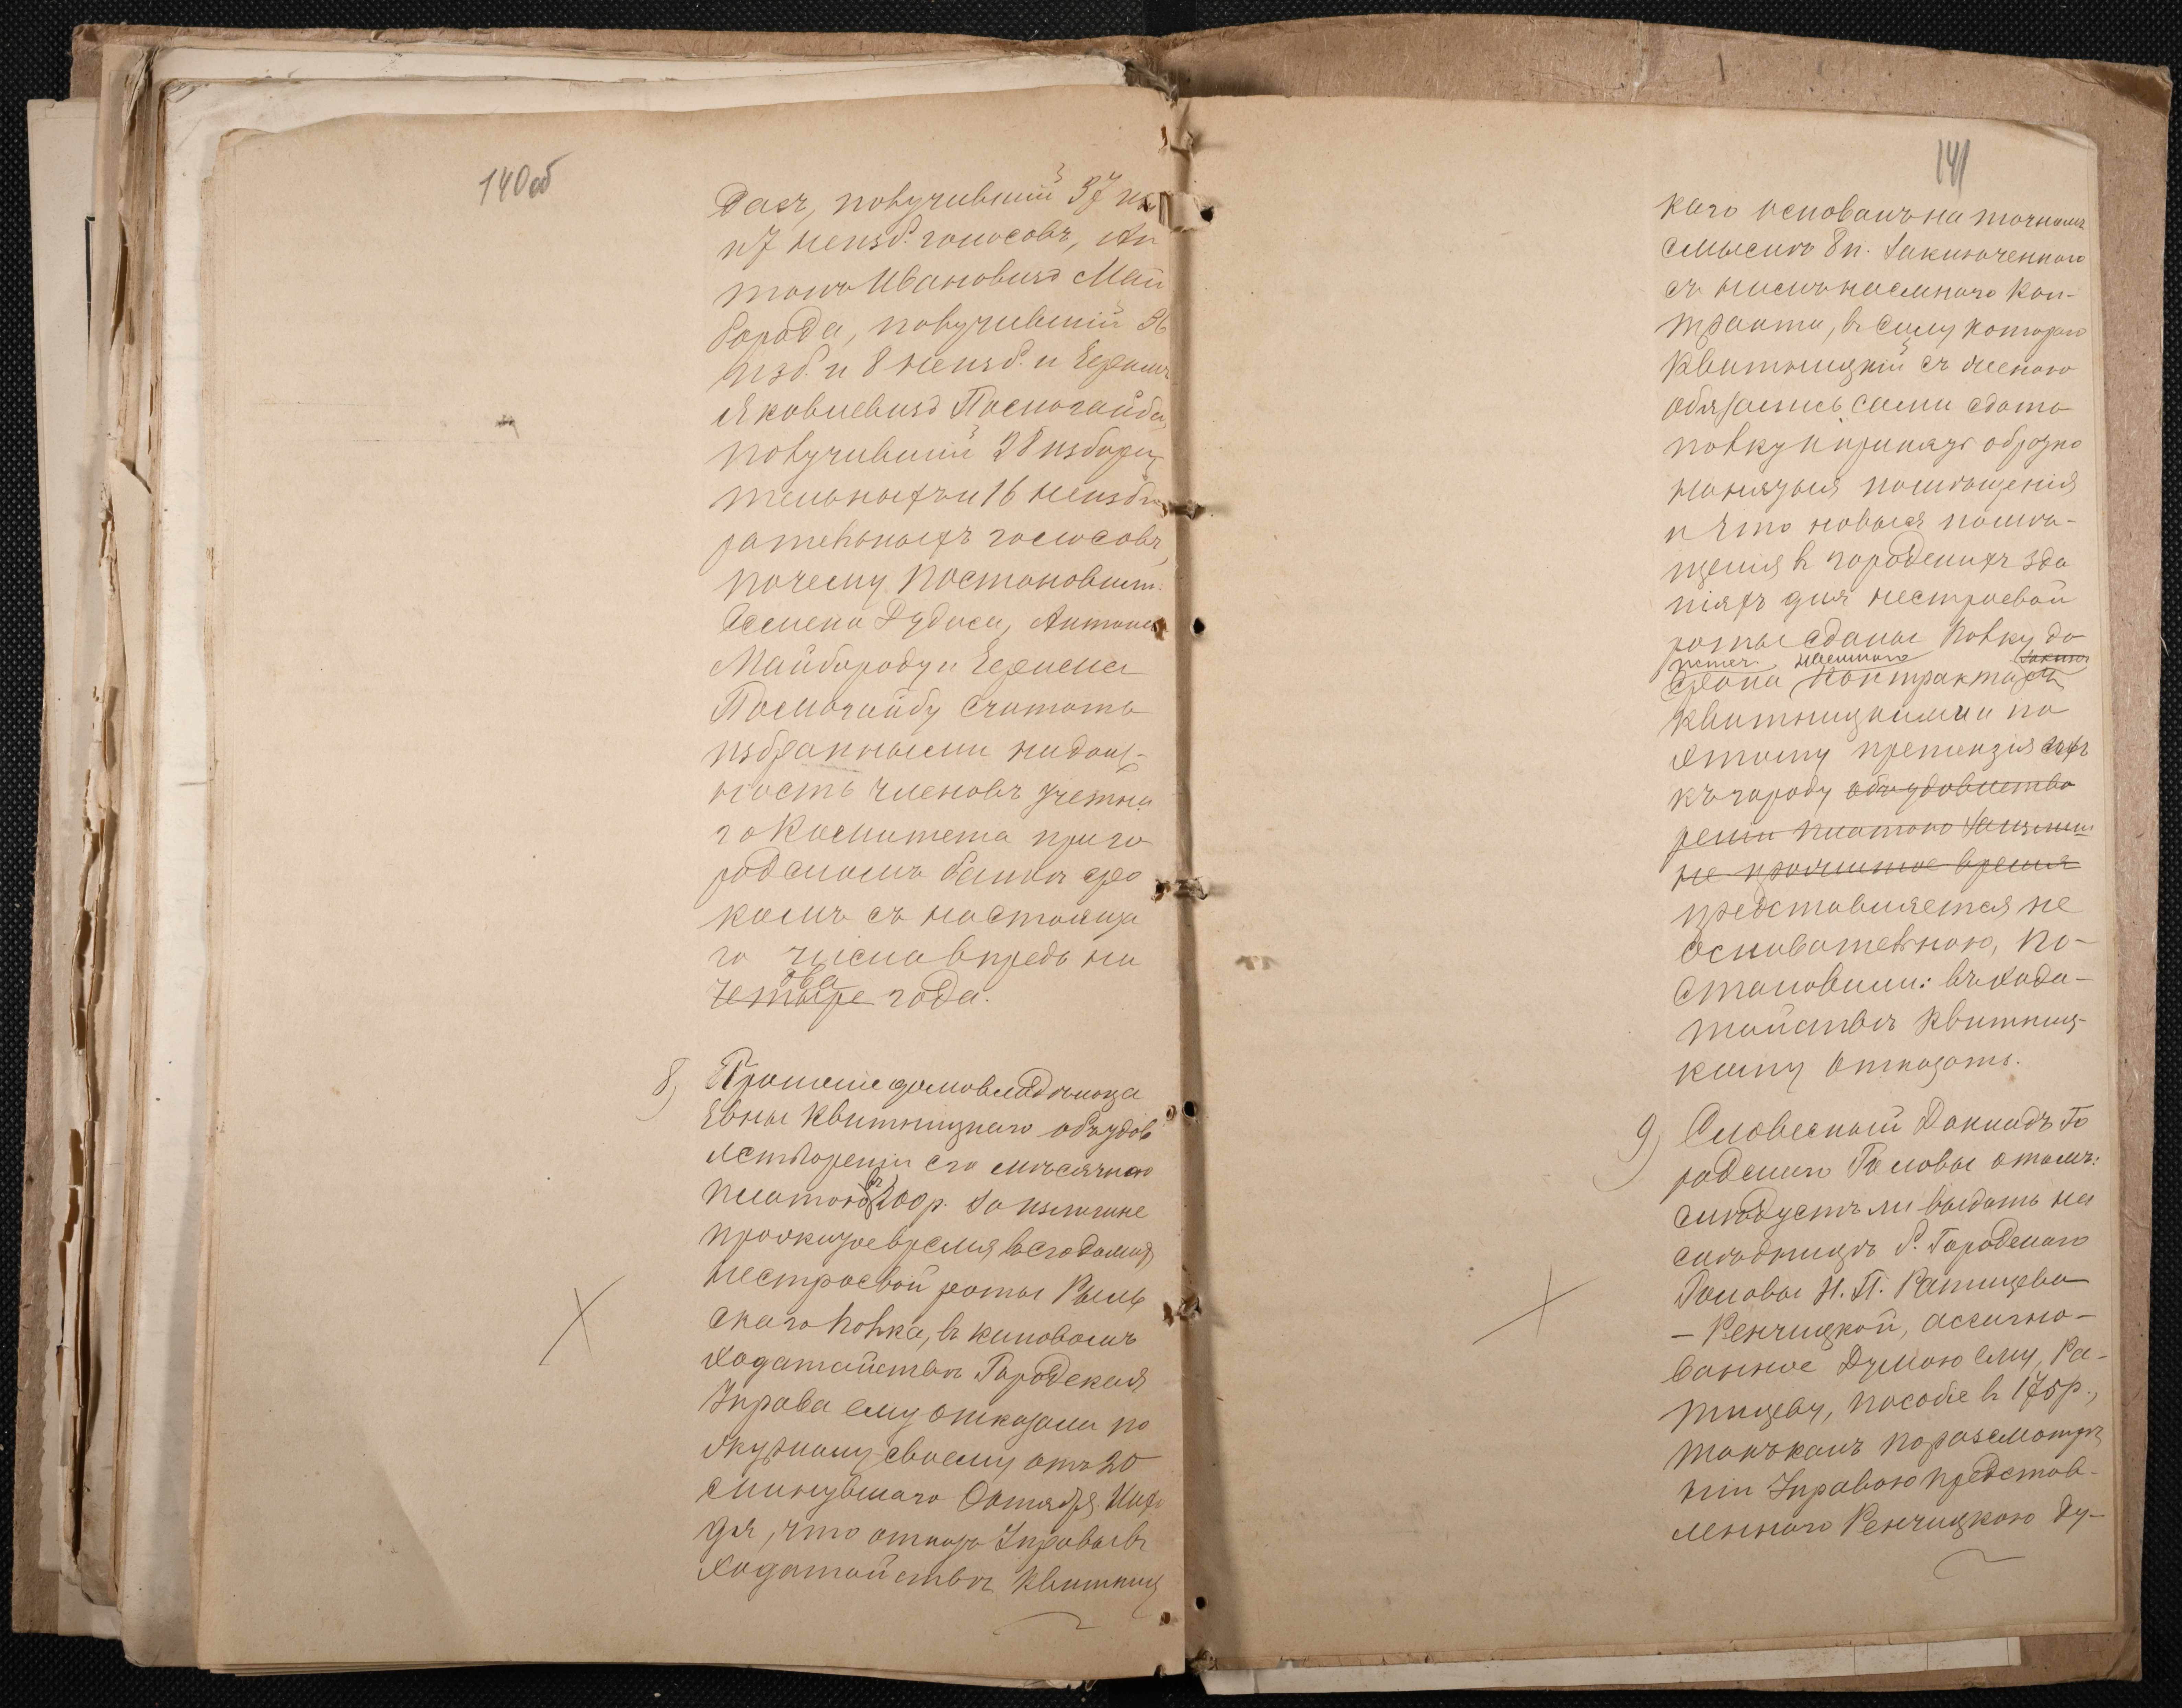 140об
дась, получившій 37 из
и 7 неизб. голосовъ, Ан
тонъ Ивановичъ Май
борода, получившій 36
изб. и 8 неизб. и Ефимъ
Яковлевичъ Посмогайба,
получившій 28 избира
тельныхъ и 16 неизби
рательныхъ голосовъ,
почему постановили:
Семена Дудася, Антона
Майбороду и Ефима
Посмогайбу считать
избранными на долж-
ность членовъ учетна
го Комитета при го
родскомъ банкѣ сро
комъ съ настояща
го числа впредь на
два
четыре года.
8) Прошеніе домовладѣльца
Евны Квитницкаго объ удов
летвореніи его мѣсячною
платою въ 200 р. за излишне
прожитое время въ его домѣ
нестроевой роты Рыль
скаго полка, въ каковомъ
ходатайствѣ Городская
Управа ему отказала по
журналу своему отъ 20
минувшаго Октября. Нахо
дя, что отказъ Управы въ
ходатайствѣ Квитниц
141
каго основанъ на точномъ
смыслѣ 8 п. заключеннаго
съ нимъ наемнаго кон-
тракта, въ силу котораго
Квитницкій съ женою
обязались сами сдать
полку и принять обратно
нанятыя помѣщенія
и что новыя помѣ-
щенія въ городскихъ зда
ніяхъ для нестроевой
роты сданы полку до
истеч. наемнаго заключ
срока контракта съ
Квитницкими и по
этому претензія ихъ
къ городу объ удовлетво
реніи платою за излиш
не прожитое время
представляется не
основательною, по-
становили: въ хода-
тайствѣ Квитниц-
кому отказать.
9) Словесный докладъ Го
родскаго Головы о томъ:
слѣдуетъ ли выдать на
слѣдницѣ б. Городскаго
Головы Н. П. Ратищева
- Ренчицкой, ассигно-
ванное Думою ему, Ра-
тищеву, пособіе въ 175 р.,
такъ какъ по разсмотрѣ
ніи Управою представ-
леннаго Ренчицкою ду-